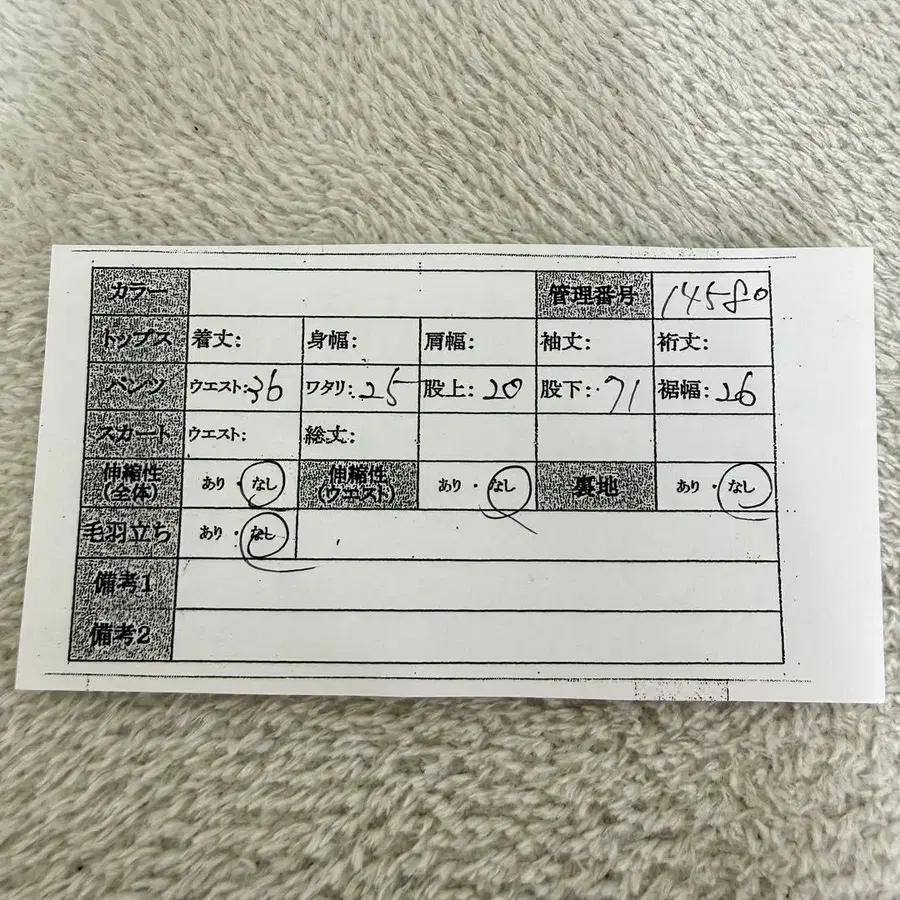 カラー 管理番号 14580
トップス 着丈: 身幅: 肩幅: 袖丈: 裄丈:
パンツ ウエスト:36 ワタリ:25 股上:20 股下:71 裾幅:26
スカート ウエスト: 総丈:
伸縮性(全体) あり・なし 伸縮性(ウエスト) あり・なし 裏地 あり・なし
毛羽立ち あり・なし
備考1
備考2